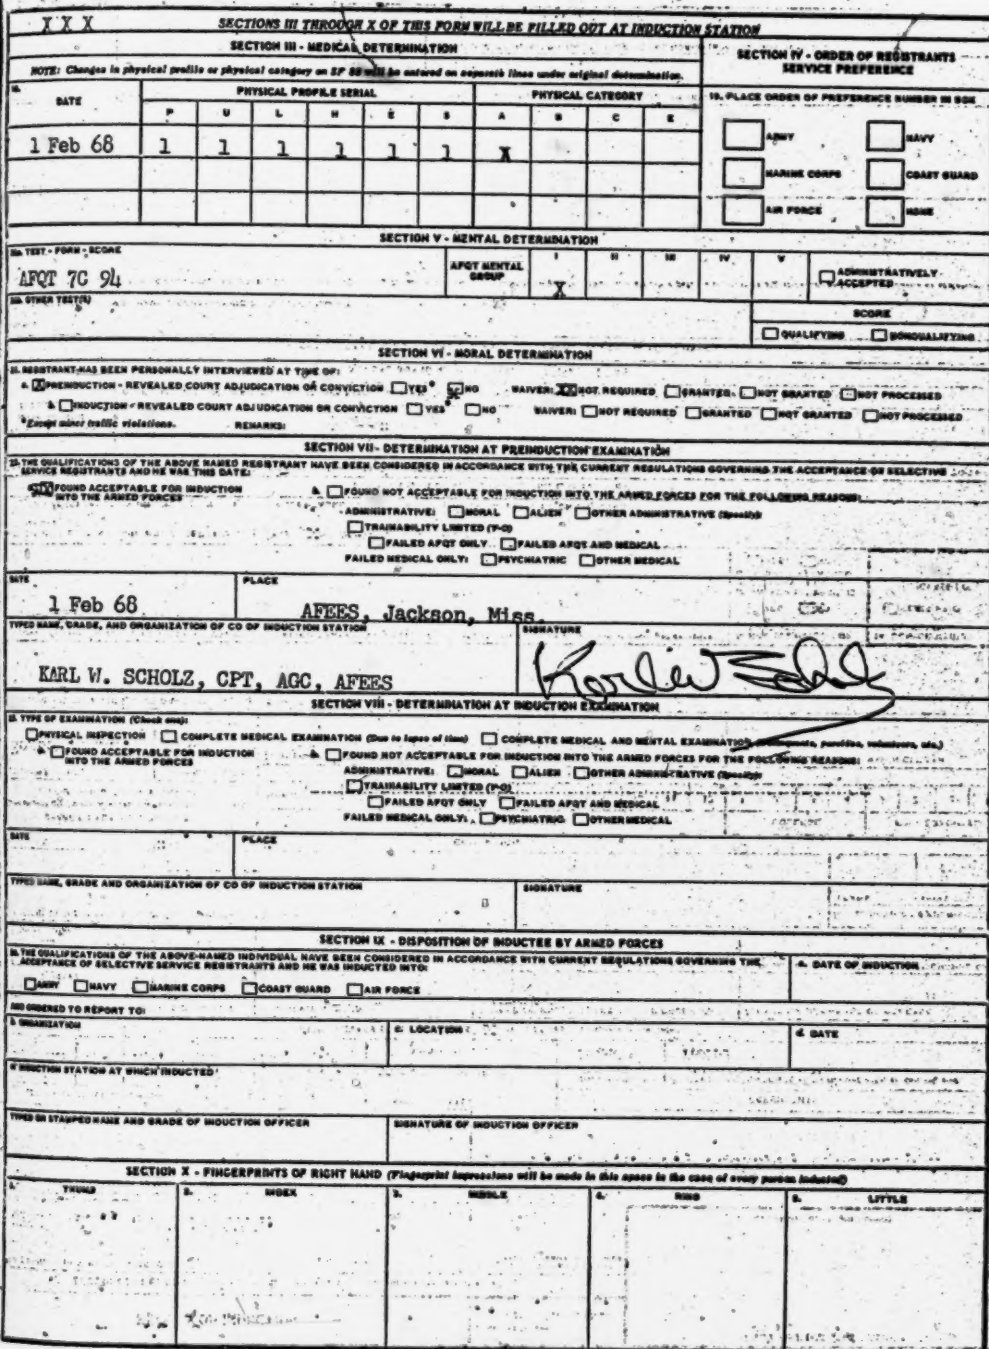 X X X SECTIONS III THROUGH X OF THIS FORM WILL BE FILLED OUT AT INDUCTION STATION
SECTION III - MEDICAL DETERMINATION
NOTE: Changes in physical profile or physical category on SF 88 will be entered on separate lines under original determination.
SECTION IV - ORDER OF REGISTRANTS
SERVICE PREFERENCE
DATE PHYSICAL PROFILE SERIAL PHYSICAL CATEGORY
P U L H E S A B C E
19. PLACE ORDER OF PREFERENCE NUMBER IN BOX
1 Feb 68 1 1 1 1 1 1 X
ARMY NAVY
MARINE CORPS COAST GUARD
AIR FORCE NONE
SECTION V - MENTAL DETERMINATION
TEST - FORM - SCORE
AFQT 7C 94
AFQT MENTAL GROUP
I II III IV V
X
ADMINISTRATIVELY ACCEPTED
OTHER TEST(S)
SCORE
QUALIFYING NONQUALIFYING
SECTION VI - MORAL DETERMINATION
REGISTRANT HAS BEEN PERSONALLY INTERVIEWED AT TIME OF:
a. X PREINDUCTION - REVEALED COURT ADJUDICATION OR CONVICTION YES* X NO WAIVER: XX NOT REQUIRED GRANTED NOT GRANTED NOT PROCESSED
b. INDUCTION - REVEALED COURT ADJUDICATION OR CONVICTION YES* NO WAIVER: NOT REQUIRED GRANTED NOT GRANTED NOT PROCESSED
*Except minor traffic violations. REMARKS:
SECTION VII - DETERMINATION AT PREINDUCTION EXAMINATION
THE QUALIFICATIONS OF THE ABOVE NAMED REGISTRANT HAVE BEEN CONSIDERED IN ACCORDANCE WITH THE CURRENT REGULATIONS GOVERNING THE ACCEPTANCE OF SELECTIVE
SERVICE REGISTRANTS AND HE WAS THIS DATE:
FOUND ACCEPTABLE FOR INDUCTION
INTO THE ARMED FORCES
b. FOUND NOT ACCEPTABLE FOR INDUCTION INTO THE ARMED FORCES FOR THE FOLLOWING REASONS:
ADMINISTRATIVE: MORAL ALIEN OTHER ADMINISTRATIVE (Specify)
TRAINABILITY LIMITED (Y-O)
FAILED AFQT ONLY FAILED AFQT AND MEDICAL
FAILED MEDICAL ONLY: PSYCHIATRIC OTHER MEDICAL
DATE PLACE
1 Feb 68 AFEES, Jackson, Miss.
TYPED NAME, GRADE, AND ORGANIZATION OF CO OF INDUCTION STATION SIGNATURE
KARL W. SCHOLZ, CPT, AGC, AFEES
SECTION VIII - DETERMINATION AT INDUCTION EXAMINATION
TYPE OF EXAMINATION (Check one):
PHYSICAL INSPECTION COMPLETE MEDICAL EXAMINATION (Due to lapse of time) COMPLETE MEDICAL AND MENTAL EXAMINATION
a. FOUND ACCEPTABLE FOR INDUCTION
INTO THE ARMED FORCES
b. FOUND NOT ACCEPTABLE FOR INDUCTION INTO THE ARMED FORCES FOR THE FOLLOWING REASONS:
ADMINISTRATIVE: MORAL ALIEN OTHER ADMINISTRATIVE (Specify)
TRAINABILITY LIMITED (Y-O)
FAILED AFQT ONLY FAILED AFQT AND MEDICAL
FAILED MEDICAL ONLY: PSYCHIATRIC OTHER MEDICAL
DATE PLACE
TYPED NAME, GRADE AND ORGANIZATION OF CO OF INDUCTION STATION SIGNATURE
SECTION IX - DISPOSITION OF INDUCTEE BY ARMED FORCES
THE QUALIFICATIONS OF THE ABOVE-NAMED INDIVIDUAL HAVE BEEN CONSIDERED IN ACCORDANCE WITH CURRENT REGULATIONS GOVERNING THE
ACCEPTANCE OF SELECTIVE SERVICE REGISTRANTS AND HE WAS INDUCTED INTO:
a. DATE OF INDUCTION
ARMY NAVY MARINE CORPS COAST GUARD AIR FORCE
AND ORDERED TO REPORT TO:
b. ORGANIZATION c. LOCATION d. DATE
INDUCTION STATION AT WHICH INDUCTED
TYPED OR STAMPED NAME AND GRADE OF INDUCTION OFFICER SIGNATURE OF INDUCTION OFFICER
SECTION X - FINGERPRINTS OF RIGHT HAND (Fingerprint impressions will be made in this space in the case of every person inducted)
1. THUMB 2. INDEX 3. MIDDLE 4. RING 5. LITTLE